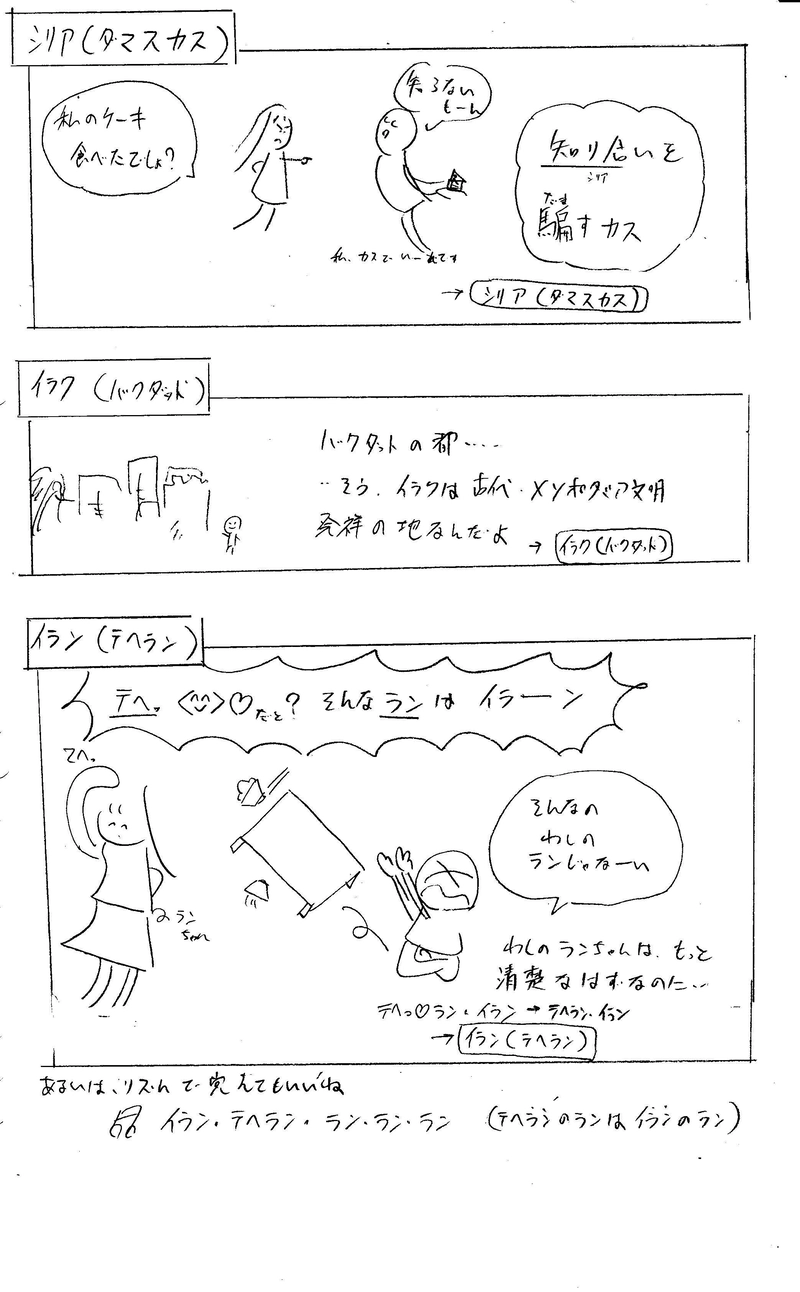 シリア(ダマスカス)
私のケーキ
食べたでしょ?
知らない
もーん
知り合いを
シリア
だま
騙すカス
私、カスで
→ シリア(ダマスカス)
イラク(バクダッド)
バクダットの都‥‥
‥そう、イラクは古代・メソポタミア文明
発祥の地なんだよ → イラク(バクダット)
イラン(テヘラン)
テヘッ <^^>♡だと? そんなランは イラーン
てへっ
ランちゃん
そんなの
わしの
ランじゃなーい
わしのランちゃんは、もっと
清楚なはずなのに‥
テヘっ♡ラン・イラン → テヘラン・イラン
→ イラン(テヘラン)
あるいは、リズムで覚えてもいいね
イラン・テヘラン・ラン・ラン・ラン (テヘランのランはイランのラン)